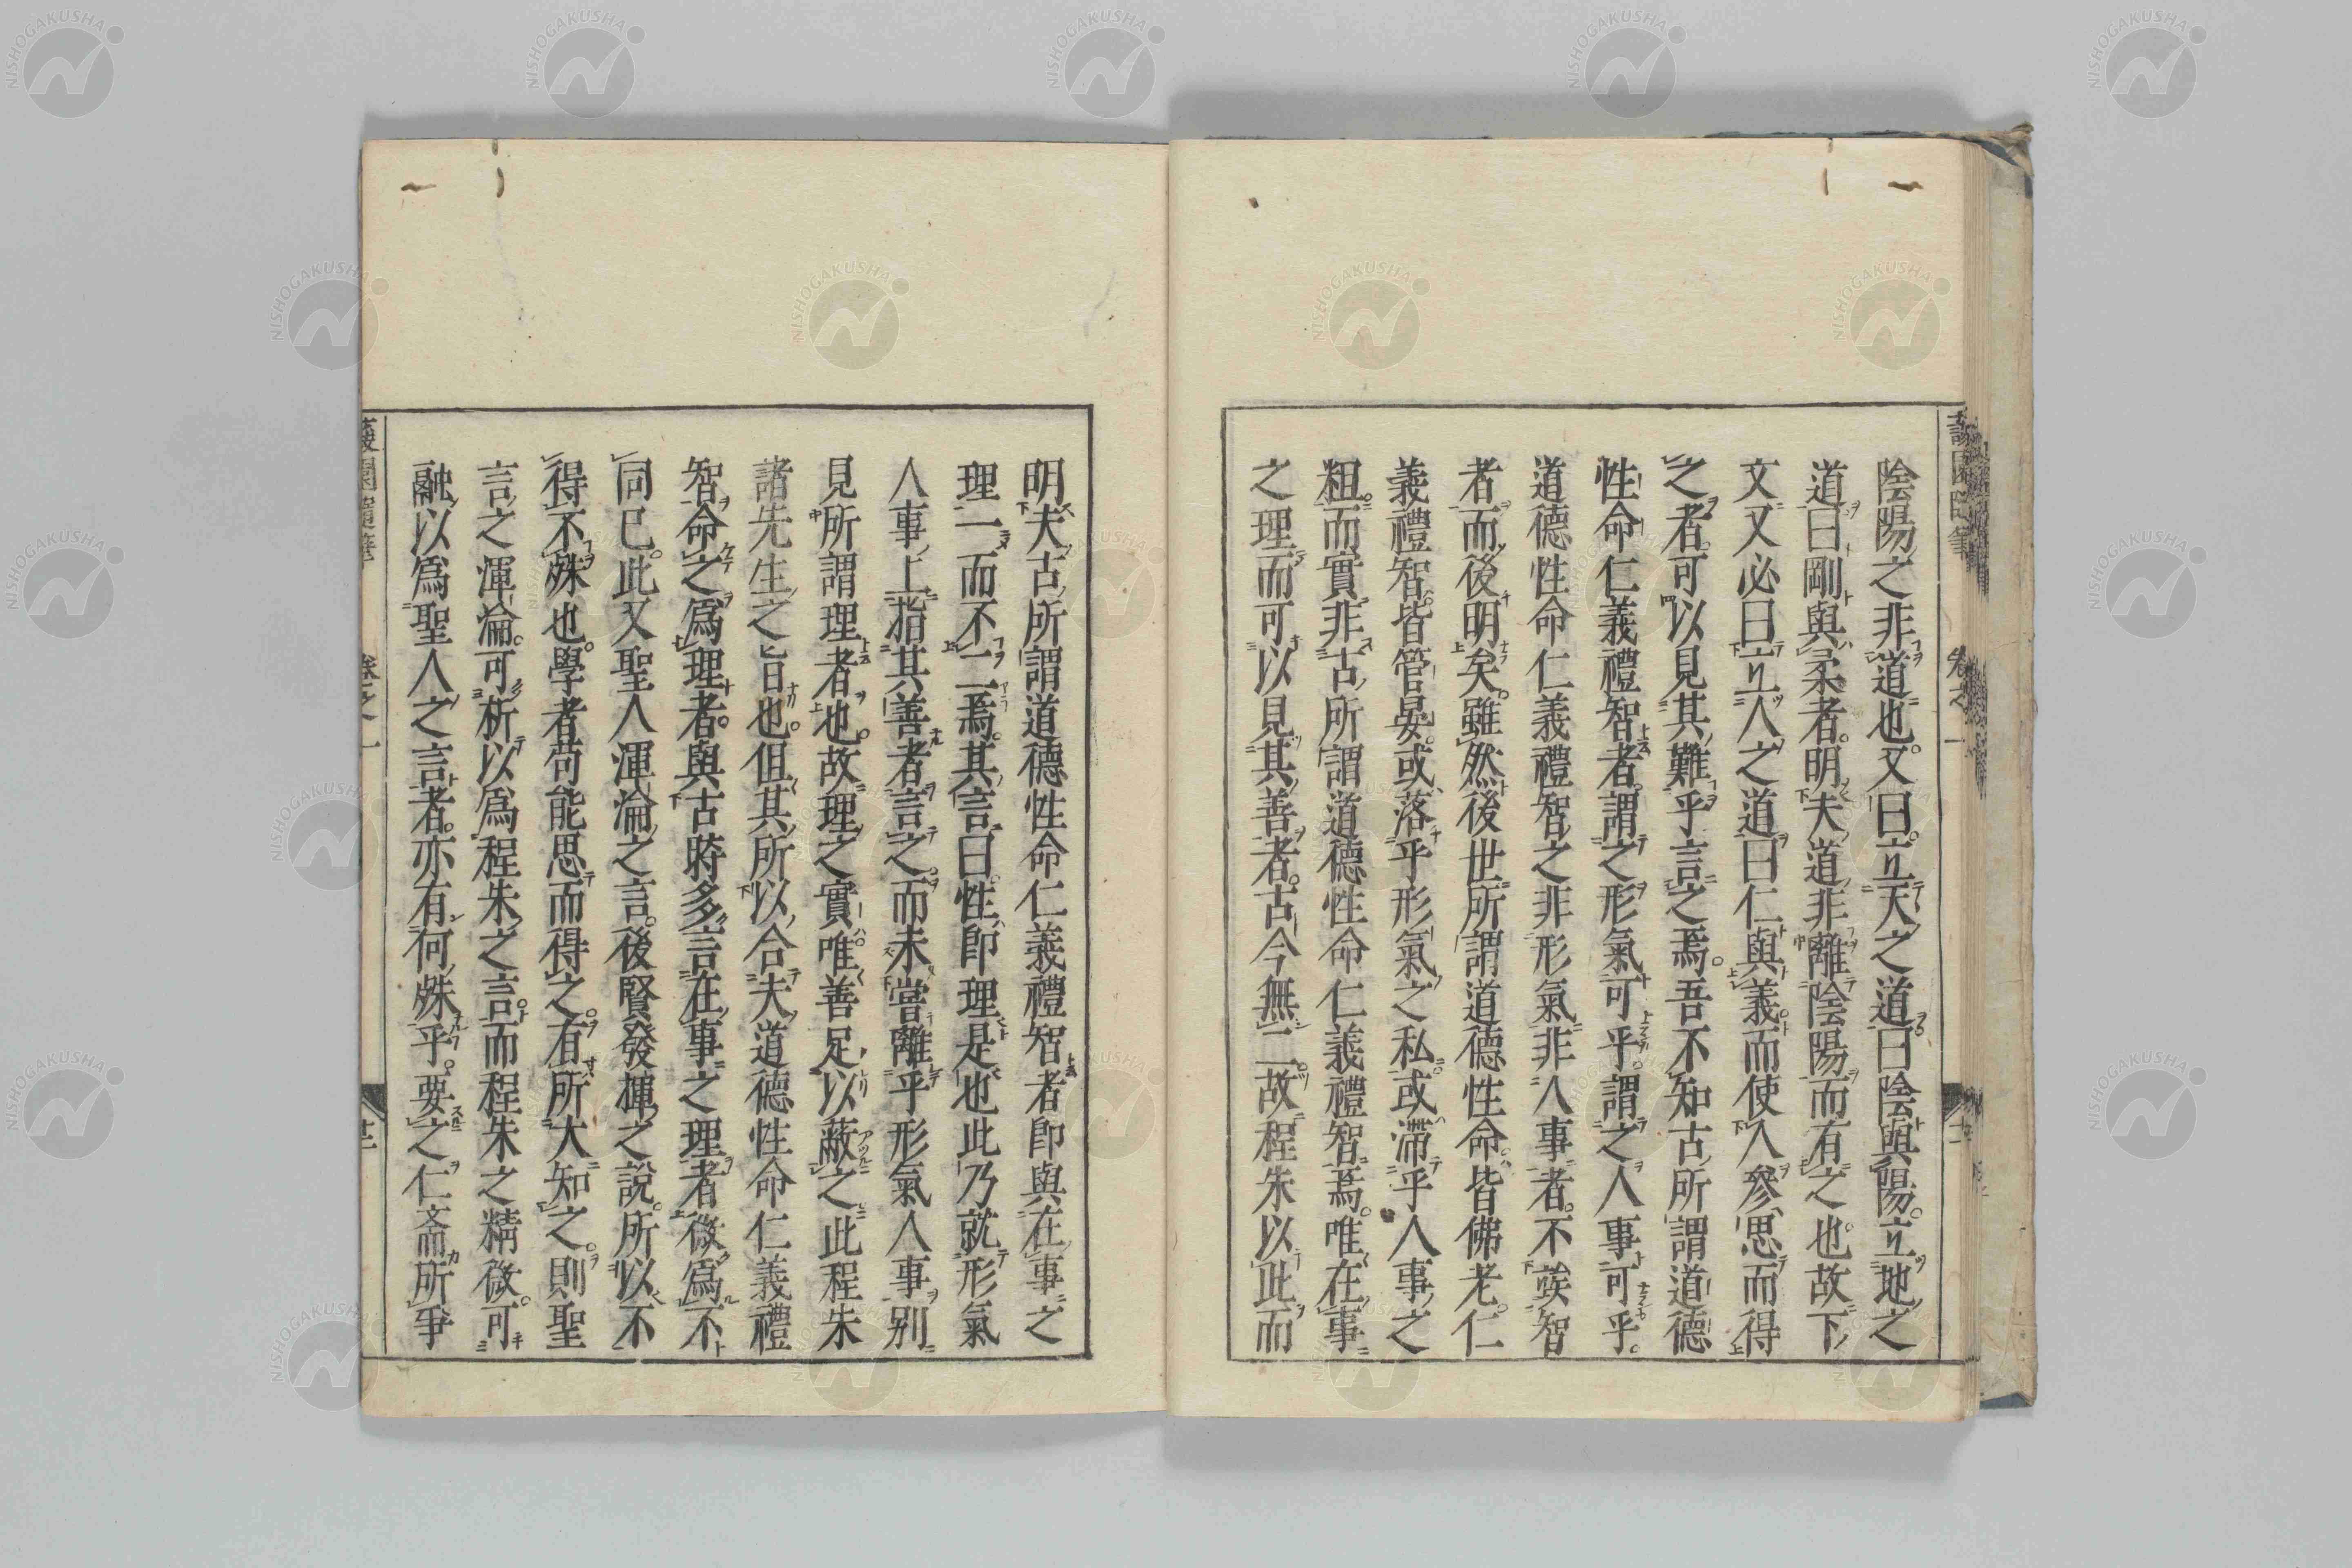 陰陽之非道也。又曰。立天之道曰陰與陽。立地之
道曰剛與柔者。明夫道非離陰陽而有之也。故下
文又必曰立人之道曰仁與義。而使人參思而得
之者。可以見其難乎言之焉。吾不知古所謂道德
性命仁義禮智者。謂之形氣可乎。謂之人事可乎。
道德性命仁義禮智之非形氣非人事者。不竢智
者而後明矣。雖然後世所謂道德性命。皆佛老。仁
義禮智。皆管晏。或落乎形氣之私。或滯乎人事之
粗。而實非古所謂道德性命仁義禮智焉。唯在事
之理而可以見其善者。古今無二。故程朱以此而
明夫古所謂道德性命仁義禮智者卽與在事之
理一而不二焉。其言曰。性卽理是也此乃就形氣
人事上指其善者言之。而未嘗離乎形氣人事別
見所謂理者也。故理之實。唯善足以蔽之。此程朱
諸先生之旨也。但其所以合夫道德性命仁義禮
智命之爲理者。與古時多言在事之理者微爲不
同已。此又聖人渾淪之言。後賢發揮之說。所以不
得不殊也。學者苟能思而得之。有所大知之。則聖
言之渾淪。可析以爲程朱之言。而程朱之精微。可
融以爲聖人之言者。亦有何殊乎。要之仁斎所爭
蘐園隨筆 卷之一
NISHOGAKUSHA